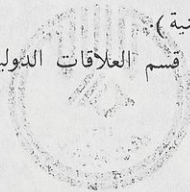 ية ).
قسم العلاقات الدولي